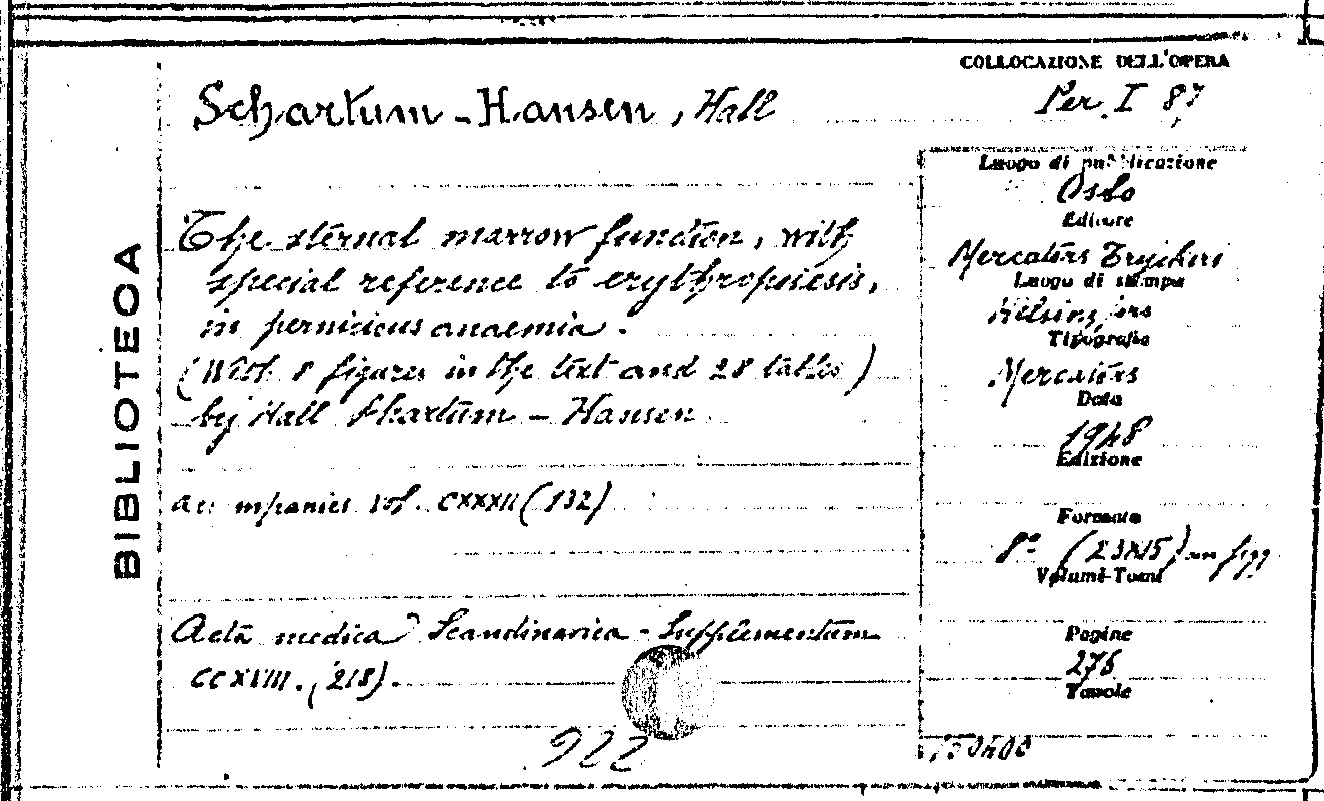 COLLOCAZIONE DELL'OPERA
Schartum-Hansen, Hall
Per. I 87
BIBLIOTECA
Luogo di pubblicazione
Oslo
Editore
The sternal marrow function, with
special reference to erythropoiesis,
in pernicious anaemia.
(With 8 figures in the text and 28 tables)
by Hall Schartum-Hansen
Mercators Tryckeri
Luogo di stampa
Helsingfors
Tipografia
Mercators
Data
1948
Edizione
accompanies vol. CXXXII (132)
Formato
8° (23x15) con figg
Volumi-Tomi
Acta medica Scandinavica - Supplementum
CCXVIII. (218).
Pagine
276
Tavole
922